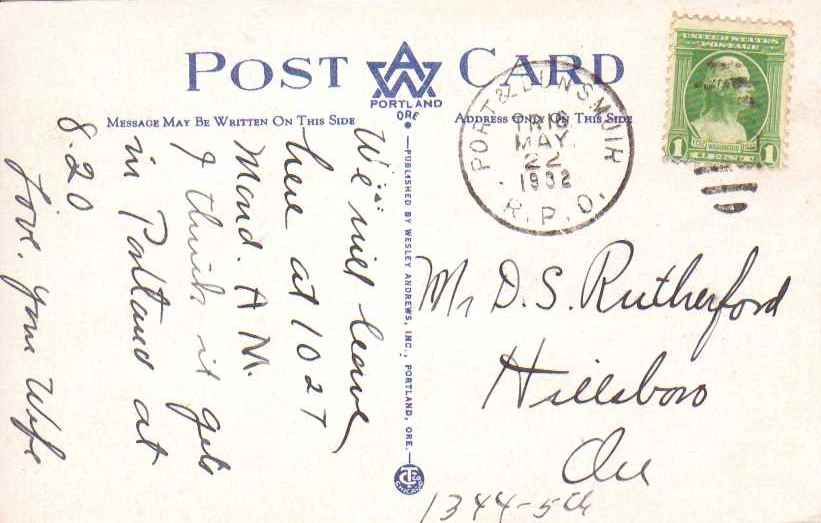 POST CARD
AW
PORTLAND
ORE
MESSAGE MAY BE WRITTEN ON THIS SIDE
ADDRESS ONLY ON THIS SIDE
PUBLISHED BY WESLEY ANDREWS, INC., PORTLAND, ORE.
PORT & DUNSMUIR
TR 18
MAY
22
1932
R.P.O.
UNITED STATES
POSTAGE
WASHINGTON
1 1
We will leave
here at 10 27
Mond. A M.
I think it gets
in Portland at
8.20
Love. your Wife
Mr D. S. Rutherford
Hillsboro
Ore
1344-5th